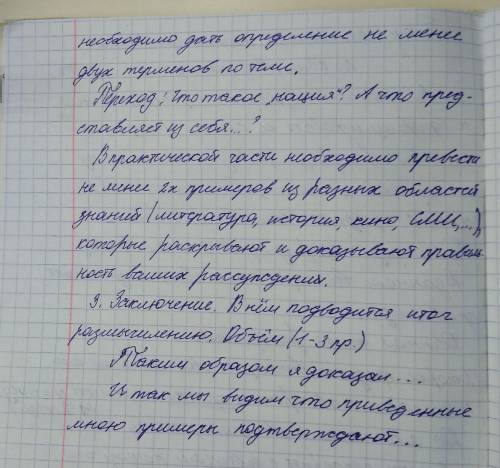 необходимо дать определение не менее
двух терменов по теме.
Переход: Что такое "нация"? А что пред-
ставляет из себя...?
В практической части необходимо превести
не менее 2х примеров из разных областей
знаний (литература, история, кино, СМИ,...),
которые раскрывают и доказывают правиль-
ность ваших рассуждений.
3. Заключение. В нём подводится итог
размышлению. Объём (1-3 пр.)
Таким образом я доказал...
И так мы видим что приведенные
мною примеры подтверждают...